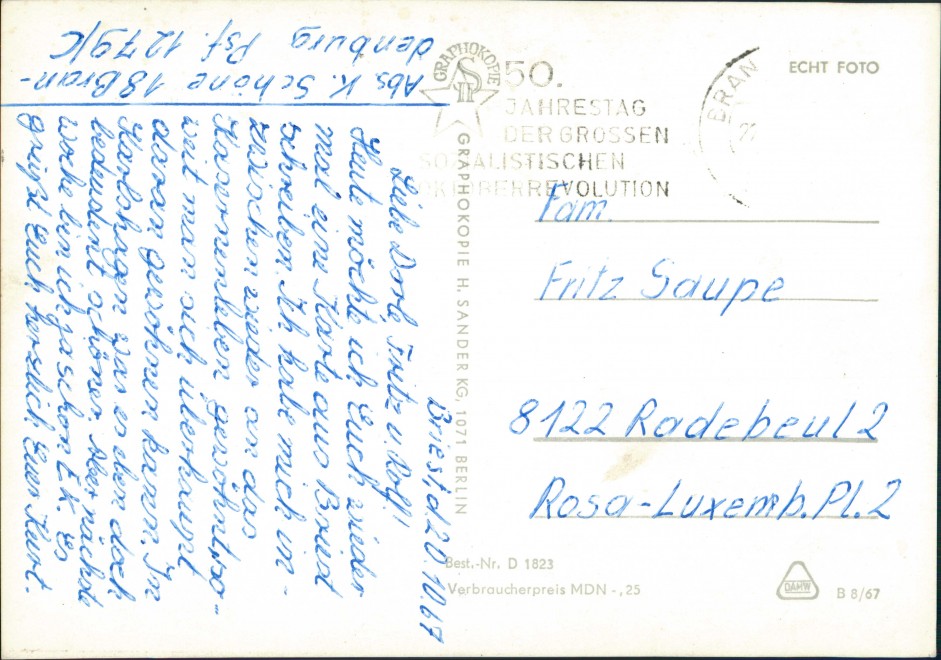 Abs. K. Schöne 18 Bran-
denburg Psf. 1279/C
Briest, d. 20.10.67
Liebe Dorle, Fritz u. Rolf!
Heute möchte ich Euch wieder
mal eine Karte aus Briest
schreiben. Ich habe mich in-
zwischen wieder an das
Kasernenleben gewöhnt, so-
weit man sich überhaupt
daran gewöhnen kann. In
Karlshagen war es eben doch
bedeutend schöner. Aber nächste
Woche bin ich ja schon EK. Es
grüßt Euch herzlich Euer Kurt.
GRAPHOKOPIE
GRAPHOKOPIE H. SANDER KG, 1071 BERLIN
50.
JAHRESTAG
DER GROSSEN
SOZIALISTISCHEN
OKTOBERREVOLUTION
BRAN
ECHT FOTO
Fam.
Fritz Saupe
8122 Radebeul 2
Rosa-Luxemb. Pl. 2
Best.-Nr. D 1823
Verbraucherpreis MDN -,25
DAMW
B 8/67